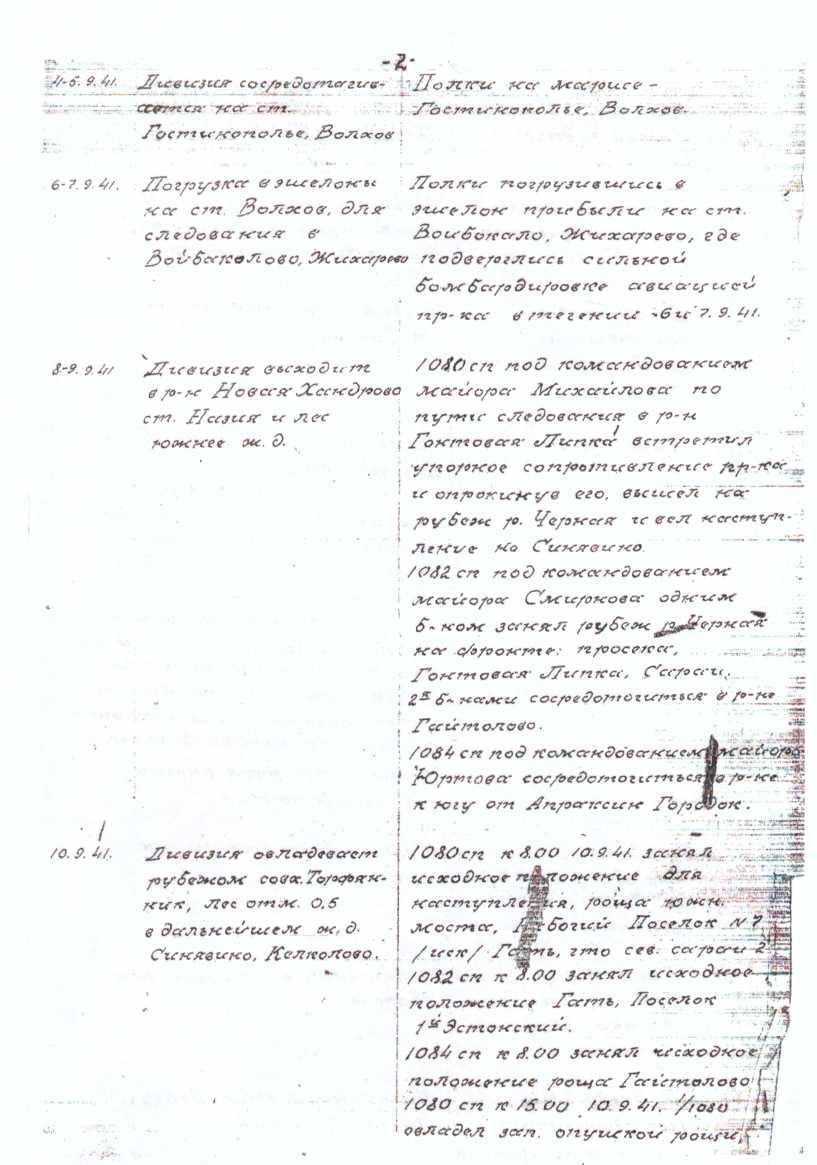 -2-
4-5.9.41.
Дивизия сосредотачив-
ается на ст.
Гостикополье, Волхов
Полки на марше -
Гостикополье, Волхов.
6-7.9.41.
Погрузка в эшелоны
на ст. Волхов, для
следования в
Войбаколово, Жихарево
Полки погрузившись в
эшелон прибыли на ст.
Войбокало, Жихарево, где
подверглись сильной
бомбардировке авиацией
пр-ка в течении 6 и 7.9.41.
8-9.9.41
Дивизия выходит
в р-н Новая Хандрово
ст. Назия и лес
южнее ж.д.
1080 сп под командованием
майора Михайлова по
пути следования в р-н
Гонтовая Липка встретил
упорное сопротивление пр-ка
и опрокинув его, вышел на
рубеж р. Черная и вел наступ-
ление на Синявино.
1082 сп под командованием
майора Смирнова одним
б-ном занял рубеж р. Черная
на фронте: просека,
Гонтовая Липка, Сараи.
2й б-нами сосредоточиться в р-не
Гайтолово.
1084 сп под командованием майора
Юртова сосредоточиться в р-не
к югу от Апраксин Городок.
10.9.41.
Дивизия овладевает
рубежом совх. Торфян-
ник, лес отм. 0,5
в дальнейшем ж.д.
Синявино, Келколово.
1080 сп к 8.00 10.9.41. занял
исходное положение для
наступления, роща южн.
моста, Рабочий Поселок N 7
/иск/ Гать, что сев. сараи 2
1082 сп к 8.00 занял исходное
положение Гать, Поселок
1й Эстонский.
1084 сп к 8.00 занял исходное
положение роща Гайтолово
1080 сп к 15.00 10.9.41. 1/1080
овладел зап. опушкой рощи,